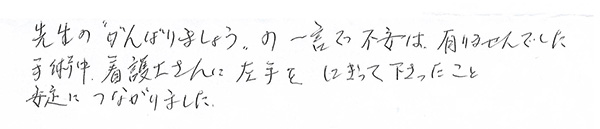 先生の"がんばりましょう"の一言で不安は、有りませんでした
手術中、看護士さんに左手をにぎって下さったこと
安定につながりました。